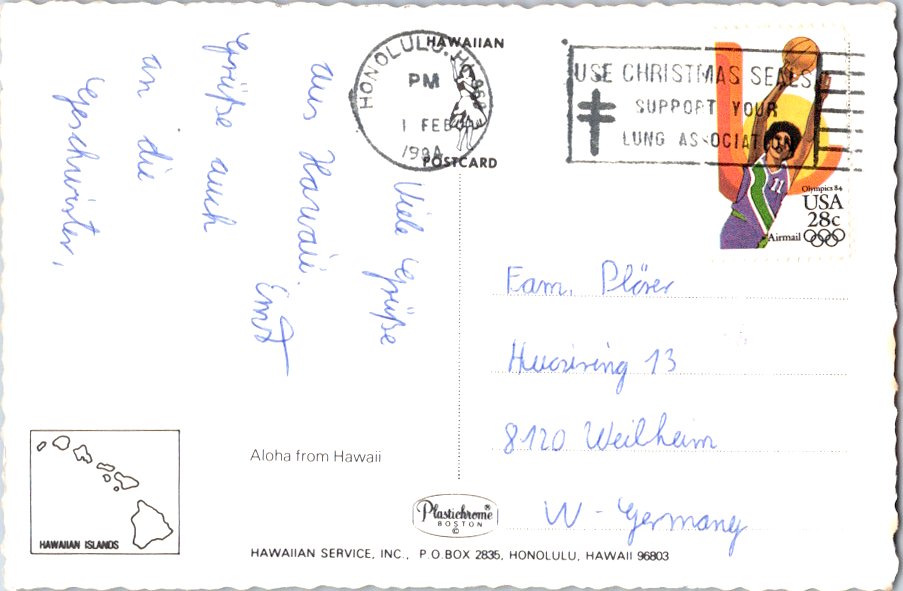 HAWAIIAN
POSTCARD
HONOLULU, HI
PM
1 FEB
USE CHRISTMAS SEALS
SUPPORT YOUR
LUNG ASSOCIATION
11
Olympics 84
USA
28c
Airmail
Viele Grüße
aus Hawaii.
Ernst
Grüße auch
an die
Geschwister,
Fam. Plörer
13
8120 Weilheim
W - Germany
Aloha from Hawaii
HAWAIIAN ISLANDS
Plastichrome®
BOSTON
©
HAWAIIAN SERVICE, INC., P.O.BOX 2835, HONOLULU, HAWAII 96803